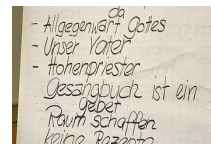 da
- Allgegenwart Gotes
- Unser Vater
- Hohenpriester
Gesangbuch ist ein
gebet
Raum schaffen
keine Rezepte